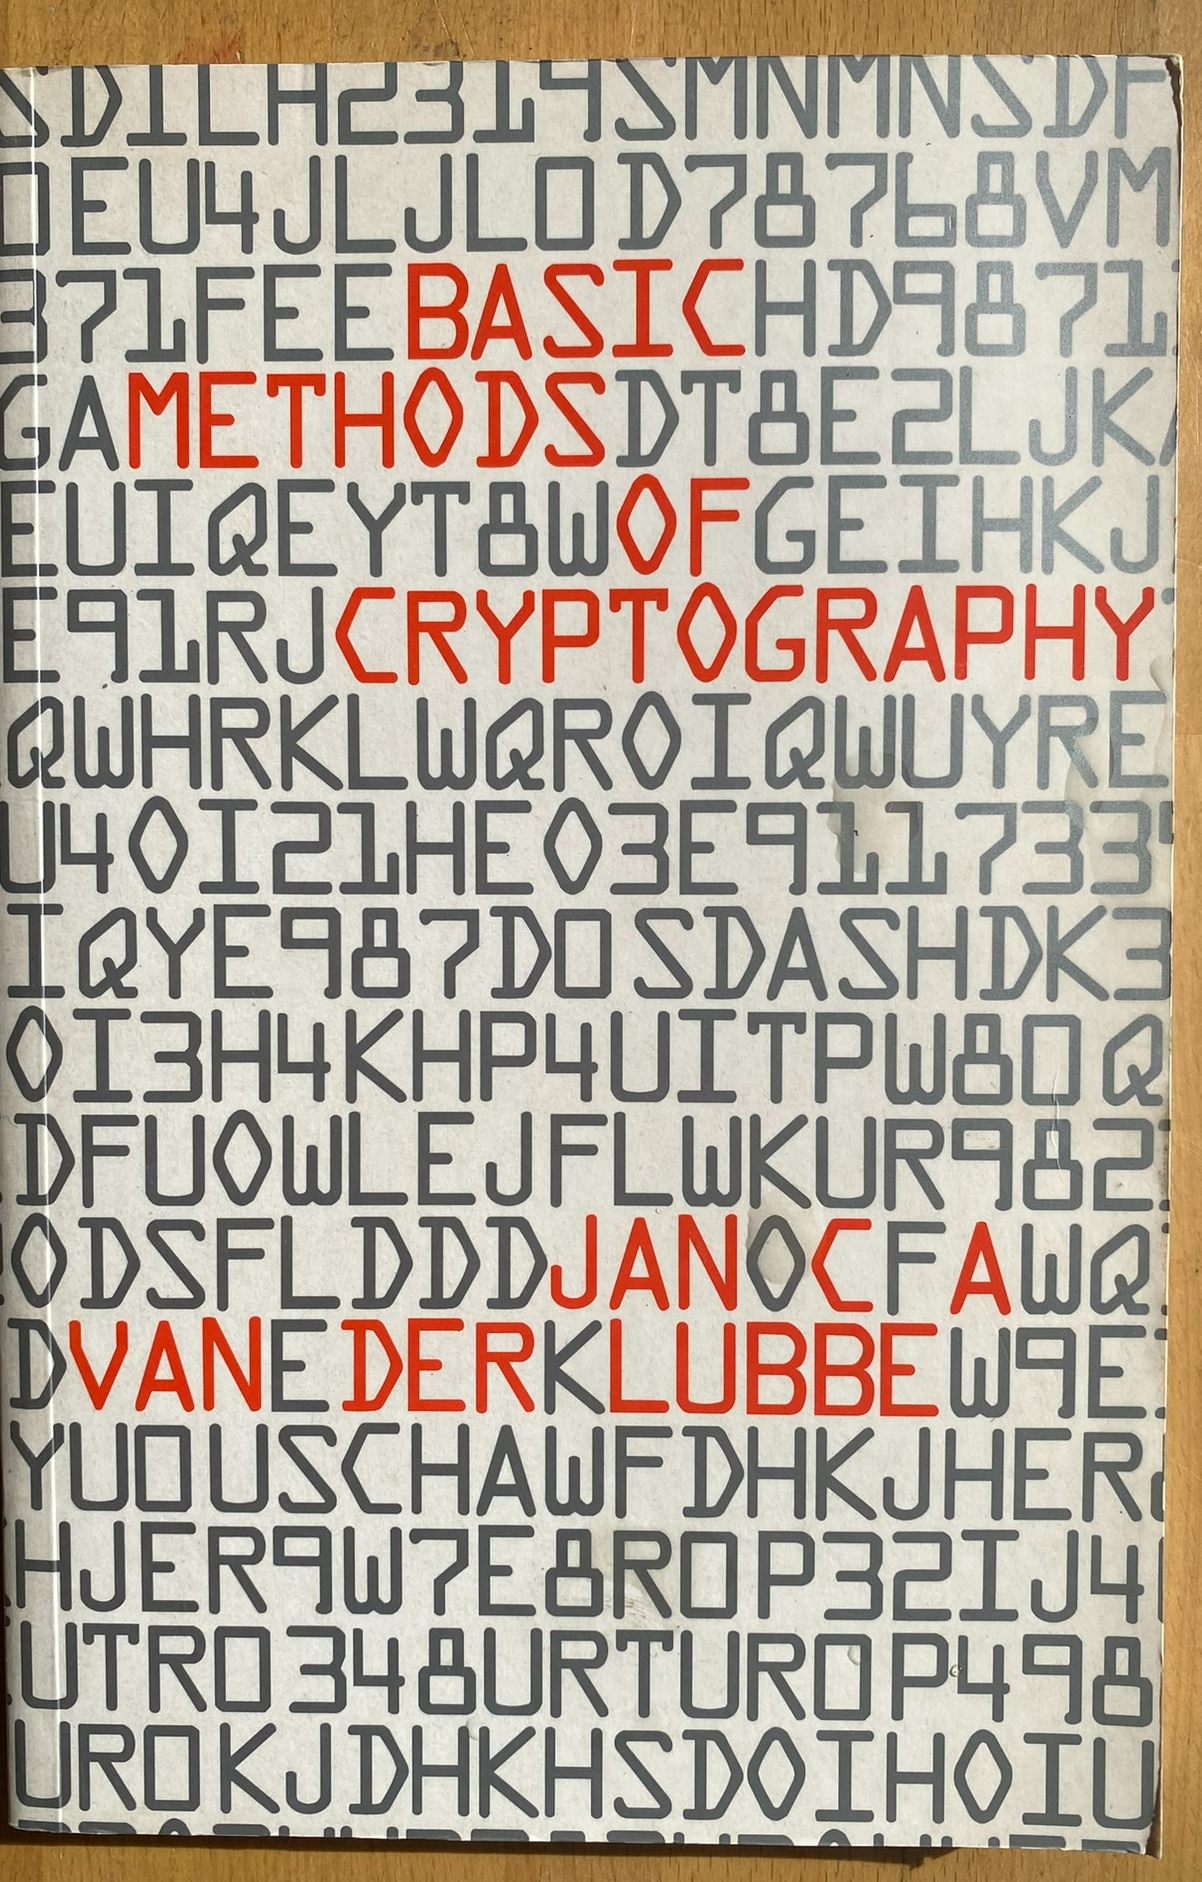 SDILH2319SMNMNSDF
0EU4JLJL0D78768VM
371FEEBASICHD9871
GAMETHODSDT8E2LJK
EUIQEYT8WOFGEIHKJ
E91RJCRYPTOGRAPHY
QWHRKLWQROIQWUYRE
U4OI21HEO3E911733
IQYE987D0SDASHDK3
OI3H4KHP4UITPW80Q
DFUOWLEJFLWKUR982
ODSFLDDDJANOCFAWQ
DVANEDERKLUBBEW9E
YU0USCHAWFDHKJHER
HJER9W7E8R0P32IJ4
UTR0348URTUR0P498
UR0KJDHKHSDOIHOIU